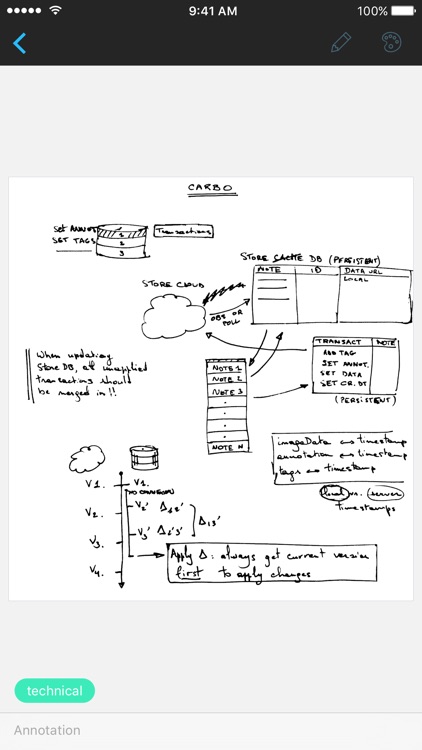 9:41 AM
100%
CARBO
Set ANNOT
SET TAGS
1
2
3
Transactions
STORE CACHE DB (PERSISTENT)
NOTE ID DATA URL
LOCAL
STORE CLOUD
OBS OR
POLL
When updating
Store DB, all unapplied
transactions should
be merged in!!
TRANSACT NOTE
ADD TAG
SET ANNOT.
SET DATA
SET CR. DT
(PERSISTENT)
NOTE 1
NOTE 2
NOTE 3
NOTE N
imageData ↔ timestamp
annotation ↔ timestamp
tags ↔ timestamp
local vs. server
timestamps
V1. V1.
NO CONNECTION
V2. V2' Δ12'
V3' Δ2'3' Δ13'
V3.
V4.
Apply Δ: always get current version
first to apply changes
technical
Annotation